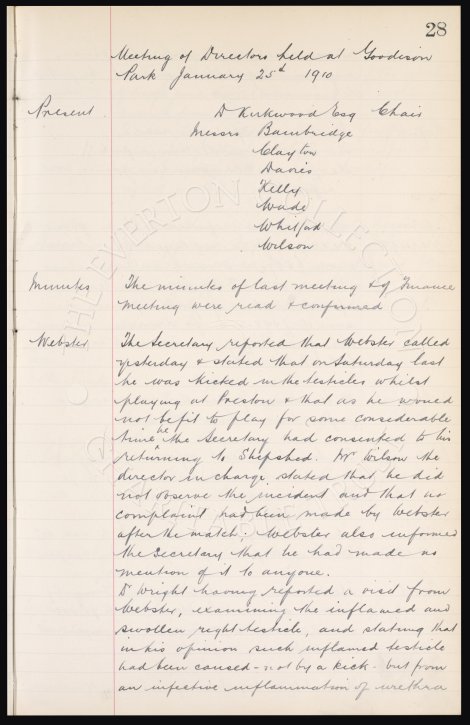 28
Meeting of Directors held at Goodison
Park January 25th 1910
Present D Kirkwood Esq Chair
Messrs Bainbridge
Clayton
Davies
Kelly
Wade
Whitford
Wilson
Minutes The minutes of last meeting & of Finance
meeting were read & confirmed
Webster The Secretary reported that Webster called
yesterday & stated that on Saturday last
he was kicked in the testicles whilst
playing at Preston & that as he would
not be fit to play for some considerable
time he the Secretary had consented to his
returning to Shepshed. Mr Wilson the
director in charge stated that he did
not observe the incident and that no
complaint had been made by Webster
after the match. Webster also informed
the Secretary that he had made no
mention of it to anyone.
Dr Wright having reported a visit from
Webster, examining the inflamed and
swollen right testicle, and stating that
in his opinion such inflamed testicle
had been caused - not by a kick - but from
an infective inflammation of urethra
THE EVERTON COLLECTION